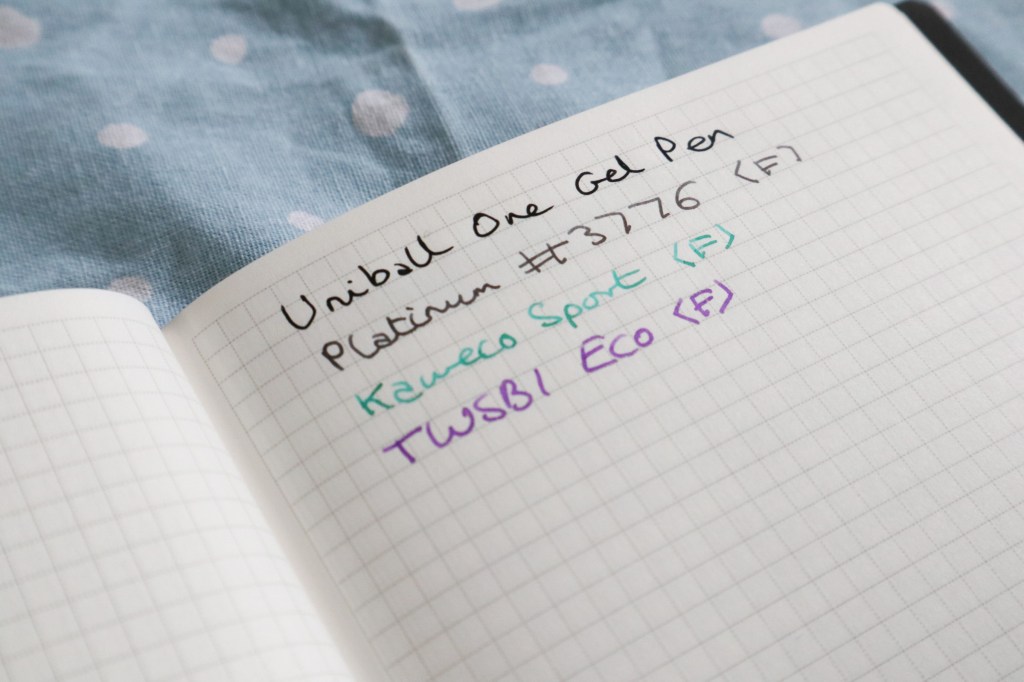 Uniball One Gel Pen
Platinum #3776 <F>
Kaweco Sport <F>
TWSBI Eco <F>